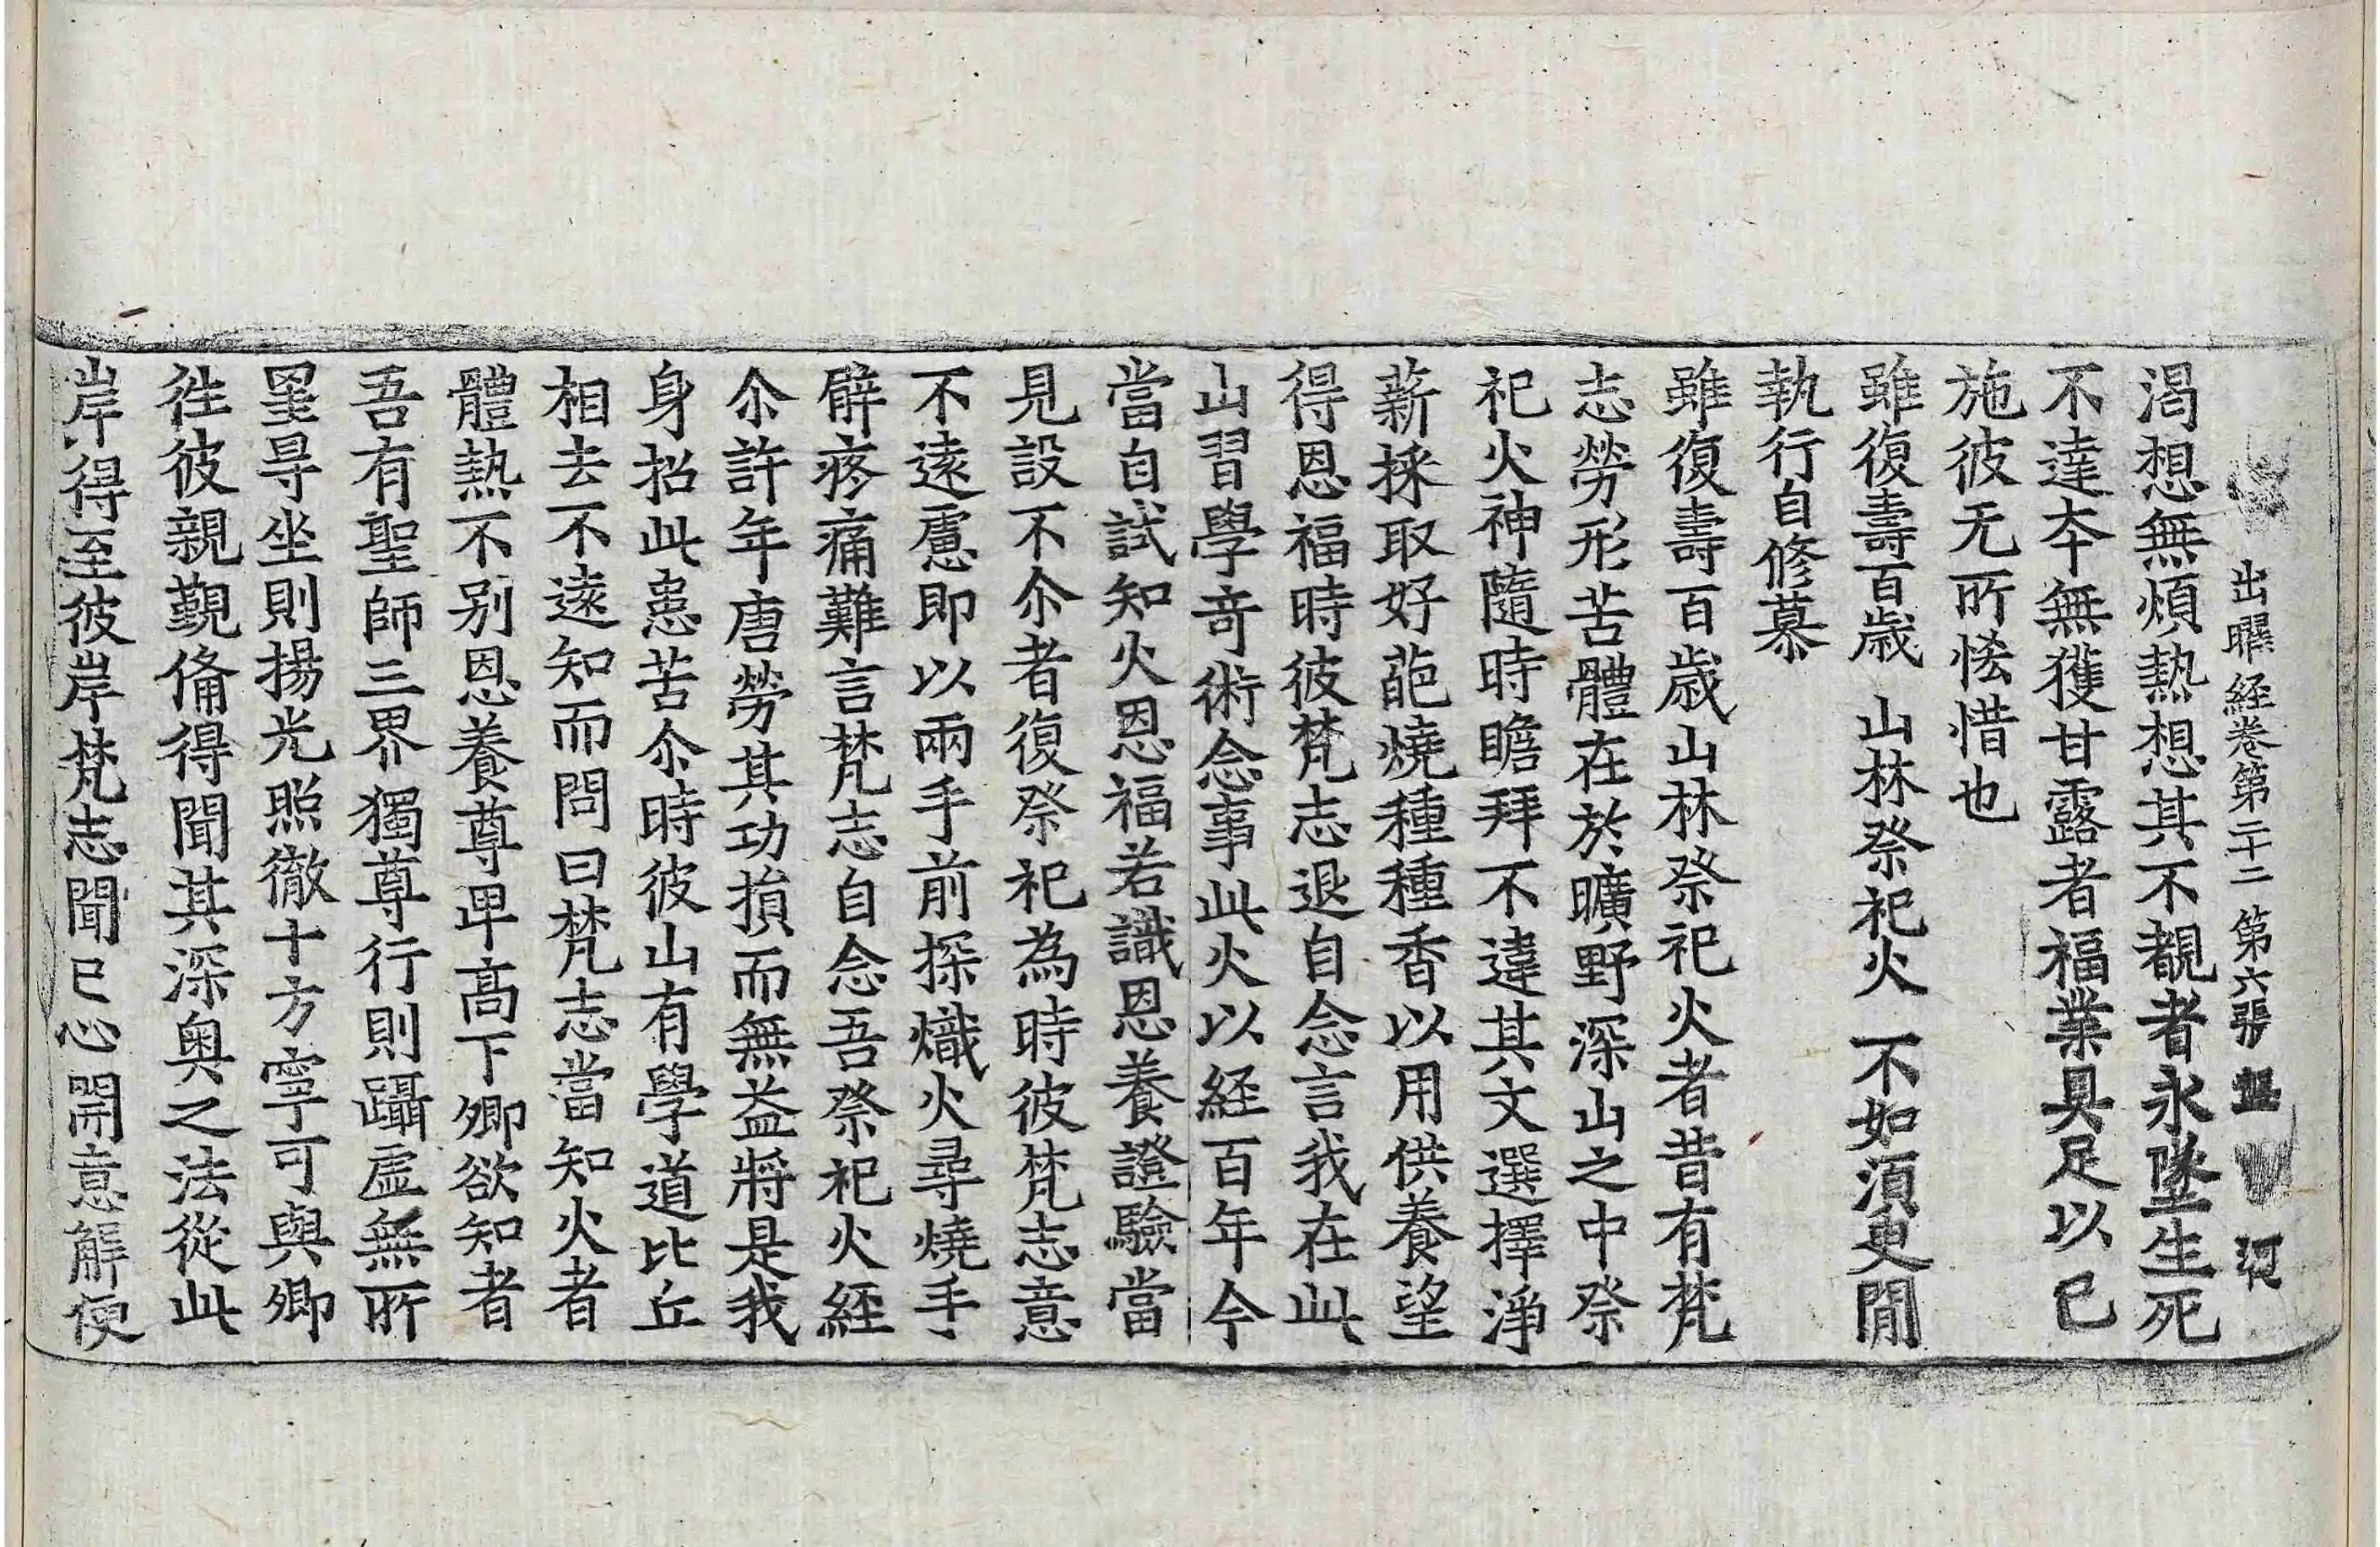 出曜経卷第二十二 第六張 河
渇想無煩熱想其不覩者永墜生死
不達夲無獲甘露者福業具足以已
施彼无所悋惜也
雖復壽百歳 山林祭祀火 不如湏臾閒
執行自修慕
雖復壽百歳山林祭祀火者昔有梵
志勞形苦體在於曠野深山之中祭
祀火神隨時瞻拜不違其文選擇淨
薪採取好葩燒種種香以用供養望
得恩福時彼梵志退自念言我在此
山習學奇術念事此火以経百年今
當自試知火恩福若識恩養證驗當
見設不尒者復祭祀為時彼梵志意
不遠慮即以兩手前探熾火尋燒手
臂疼痛難言梵志自念吾祭祀火経
尒許年唐勞其功損而無益將是我
身招此患苦尒時彼山有學道比丘
相去不遠知而問曰梵志當知火者
體熱不别恩養尊卑高下卿欲知者
吾有聖師三界獨尊行則躡虛無所
罣㝵坐則揚光照徹十方寧可與卿
徃彼親覲俻得聞其深奥之法從此
岸得至彼岸梵志聞已心開意解便